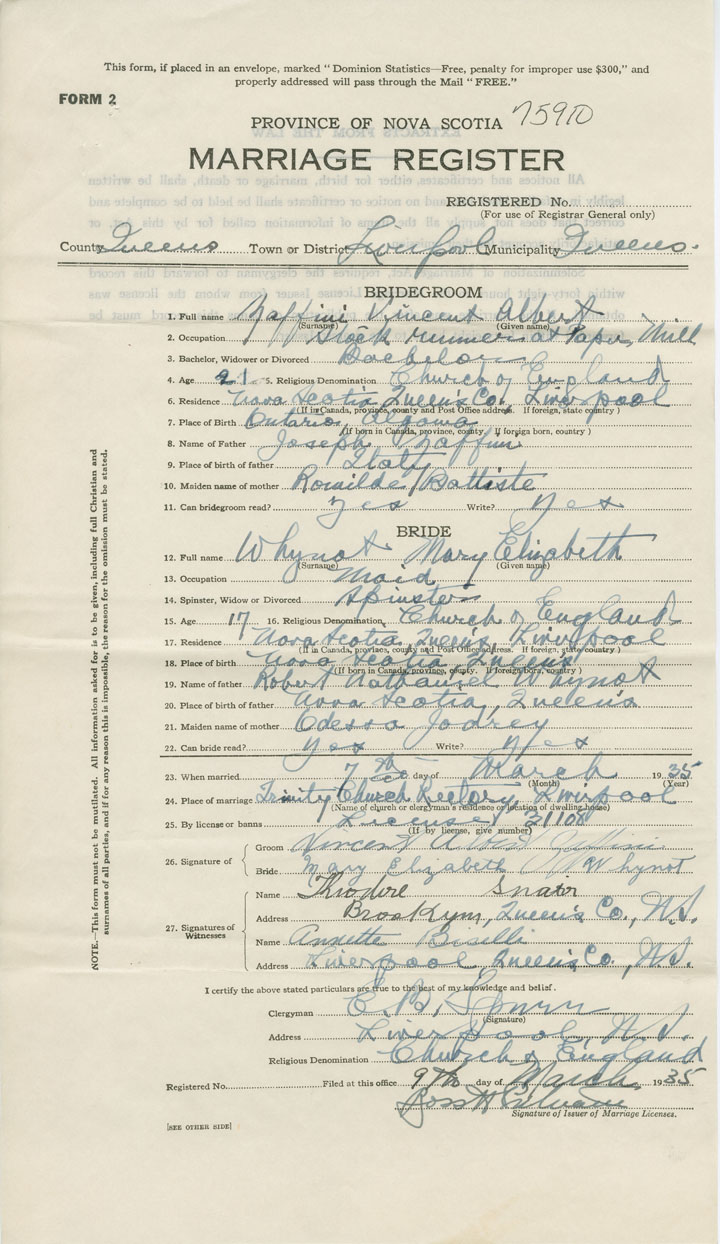 This form, if placed in an envelope, marked " Dominion Statistics—Free, penalty for improper use $300," and
properly addressed will pass through the Mail " FREE."
FORM 2
PROVINCE OF NOVA SCOTIA 75910
MARRIAGE REGISTER
REGISTERED No.
(For use of Registrar General only)
County Queens Town or District Liverpool Municipality Queens.
BRIDEGROOM
1. Full name Vincent Albert
(Surname) (Given name)
2. Occupation Stock runner at Paper Mill
3. Bachelor, Widower or Divorced Bachelor
4. Age 21 5. Religious Denomination Church of England
6. Residence Nova Scotia Queen's Co. Liverpool
(If in Canada, province, county and Post Office address. If foreign, state country )
7. Place of Birth Ontario, Algoma
(If born in Canada, province, county. If foreign born, country )
8. Name of Father Joseph
9. Place of birth of father Italy
10. Maiden name of mother Romilde Battiste
11. Can bridegroom read? Yes Write? Yes
BRIDE
12. Full name Whynot Mary Elizabeth
(Surname) (Given name)
13. Occupation Maid
14. Spinster, Widow or Divorced Spinster
15. Age 17 16. Religious Denomination Church of England
17. Residence Nova Scotia, Queens Liverpool
(If in Canada, province, county and Post Office address. If foreign, state country )
18. Place of birth Nova Scotia, Queens
(If born in Canada, province, county. If foreign born, country )
19. Name of father Robert Nathaniel Whynot
20. Place of birth of father Nova Scotia, Queens
21. Maiden name of mother Odessa Jodrey
22. Can bride read? Yes Write? Yes
23. When married 7th day of March 1935
(Month) (Year)
24. Place of marriage Trinity Church Rectory, Liverpool
(Name of church or clergyman's residence or location of dwelling house)
25. By license or banns License
(If by license, give number)
26. Signature of
Groom Vincent
Bride Mary Elizabeth Whynot
27. Signatures of Witnesses
Name
Address Queen's Co., N.S.
Name Annette
Address Liverpool Queen's Co., N.S.
I certify the above stated particulars are true to the best of my knowledge and belief.
Clergyman E. B.
(Signature)
Address Liverpool, N.S.
Religious Denomination Church of England
Registered No. Filed at this office 9th day of March 1935
Signature of Issuer of Marriage Licenses.
[SEE OTHER SIDE]
NOTE.—This form must not be mutilated. All information asked for is to be given, including full Christian and
surnames of all parties, and if for any reason this is impossible, the reason for the omission must be stated.